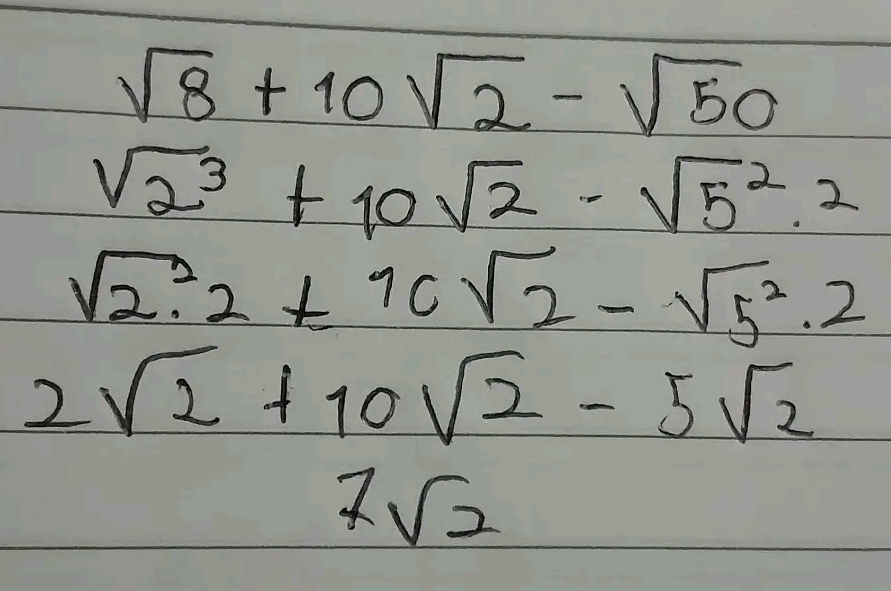 √8 + 10√2 - √50
√2³ + 10√2 - √5².2
√2².2 + 10√2 - √5².2
2√2 + 10√2 - 5√2
7√2